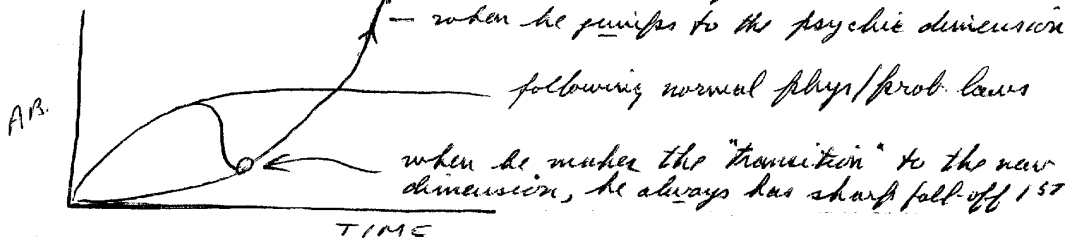 — when he jumps to the psychic dimension
following normal phys/prob laws
AB.
when he makes the "transition" to the new
dimension, he always has sharp fall-off 1ST
TIME